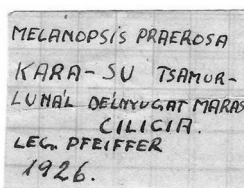 MELANOPSIS PRAEROSA
KARA-SU TSAMUR-
LUNÁL DÉLNYUGAT MARAS
CILICIA.
LEG. PFEIFFER
1926.